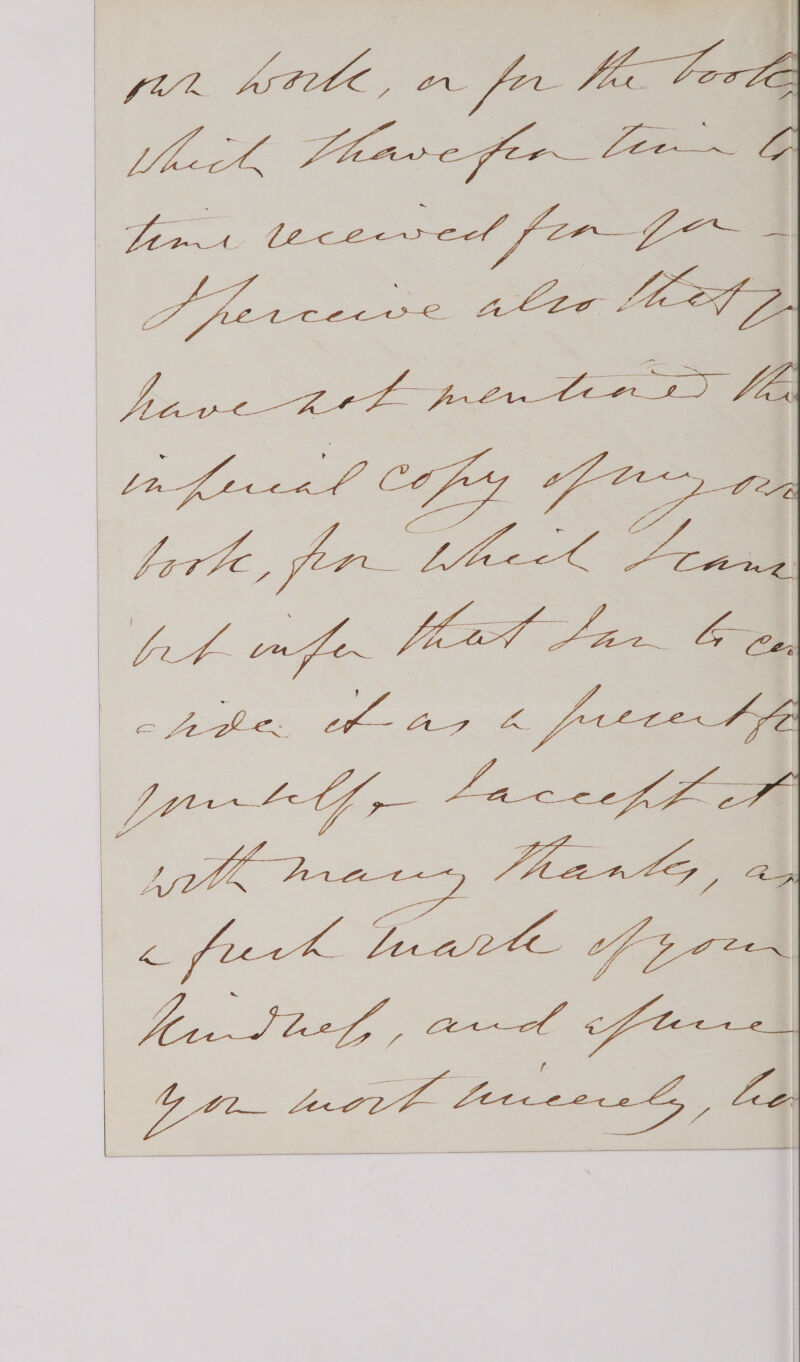 own work, or for the books,
which I have from time to
time received from you –
I perceive also that
have not mentioned the
imperial copy of my own
book, from which I cannot
but infer that I am to con
=sider it as a present fr
yourself – I accept it
with many thanks, as
a fresh mark of your
kindness, and assure
you most sincerely, ho